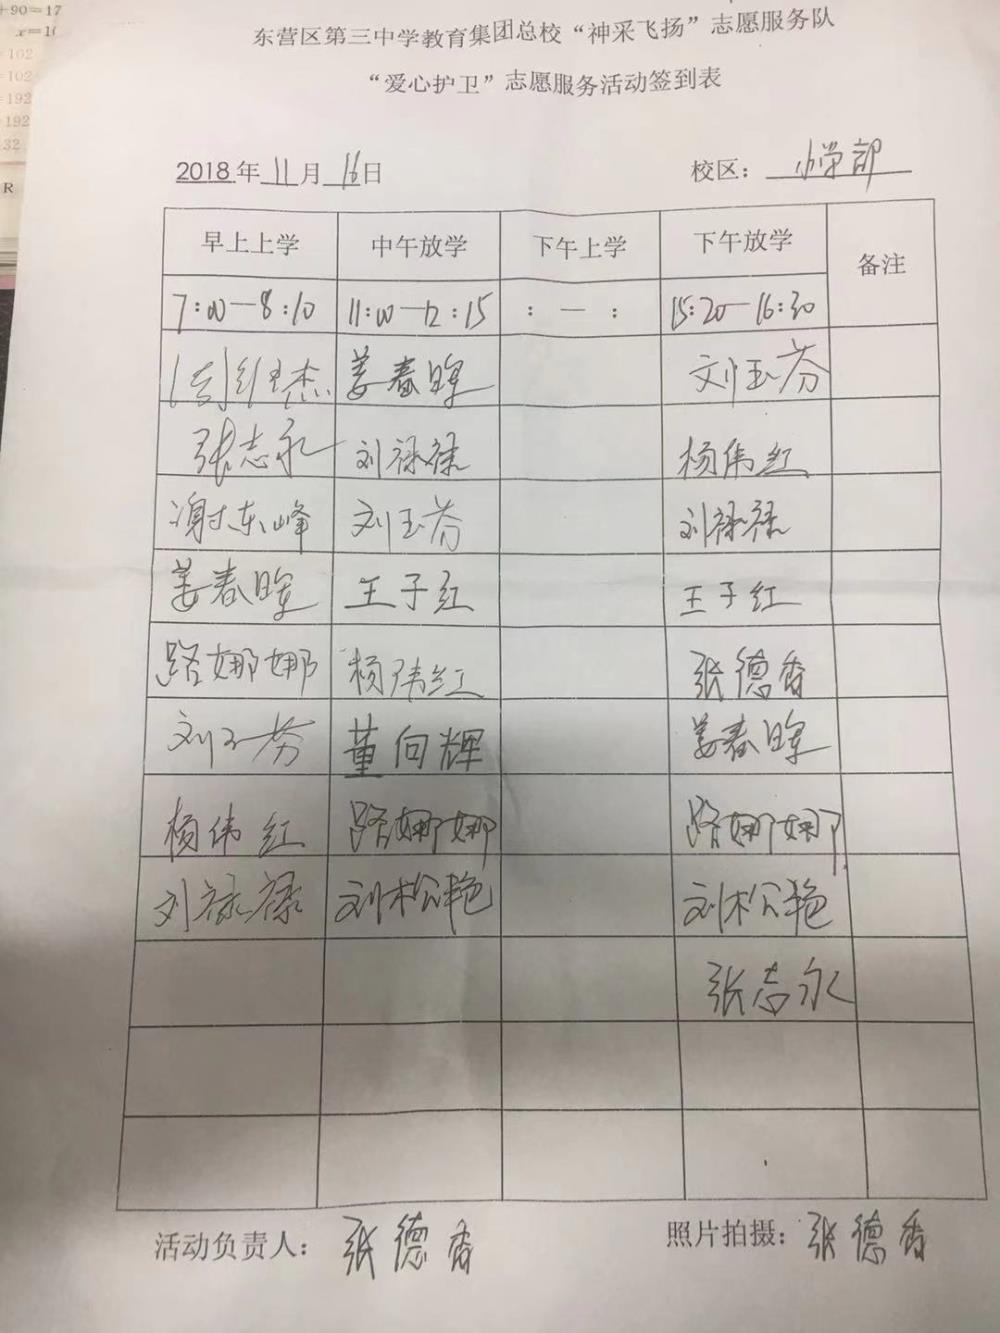 +90=17
x=16
=102
=102
=192
=192
32
R
东营区第三中学教育集团总校“神采飞扬”志愿服务队
“爱心护卫”志愿服务活动签到表
2018年11月16日 校区：小学部
早上上学 中午放学 下午上学 下午放学 备注
7:00—8:10 11:00—12:15 : — : 15:20—16:30
姜春晖 刘玉芬
张志永 刘禄禄 杨伟红
谢东峰 刘玉芬 刘禄禄
姜春晖 王子红 王子红
路娜娜 杨伟红 张德香
刘玉芬 董向辉 姜春晖
杨伟红 路娜娜 路娜娜
刘禄禄 刘松艳 刘松艳
张志永
活动负责人：张德香 照片拍摄：张德香